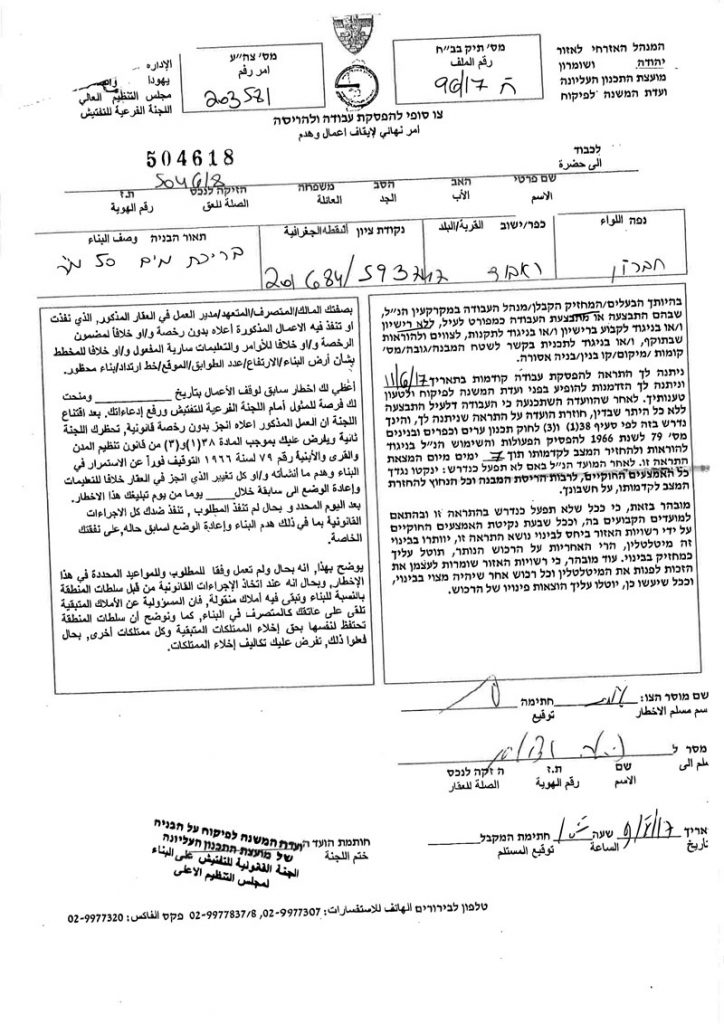 המנהל האזרחי לאזור
יהודה ושומרון
מועצת התכנון העליונה
ועדת המשנה לפיקוח
מס׳ תיק בב״ח
رقم الملف
ח 96/17
מס׳ צה״ע
امر رقم
203581
الإدارة
يهودا
مجلس التنظيم العالي
اللجنة الفرعية للتفتيش
צו סופי להפסקת עבודה ולהריסה
امر نهائي لإيقاف اعمال وهدم
504618
לכבוד
الى حضرة
504618
שם פרטי האב הסב משפחה הזיקה לנכס ת.ז
الاسم الأب الجد العائلة الصلة للعق رقم الهوية
נפה اللواء
חברון
כפר/ישוב القرية/البلد
ראבוד
נקודת ציון النقطة الجغرافية
201684/593717
תאור הבניה وصف البناء
בריכת מים 50 מ״ר
בהיותך הבעלים/המחזיק הקבלן/מנהל העבודה במקרקעין הנ״ל,
שבהם התבצעה או מתבצעת העבודה כמפורט לעיל, ללא רישיון
ו/או בניגוד לקבוע ברישיון ו/או בניגוד לתקנות, לצווים ולהוראות
שבתוקף, ו/או בניגוד לתכנית בקשר לשטח המבנה/גובה/מס׳
קומות /מיקום/קו בנין/בניה אסורה.
ניתנה לך התראה להפסקת עבודה קודמות בתאריך 11/6/17
וניתנה לך הזדמנות להופיע בפני ועדת המשנה לפיקוח ולטעון
טענותיך. לאחר שהוועדה השתכנעה כי העבודה דלעיל התבצעה
ללא כל היתר שבדין, חוזרת הועדה על התראה שניתנה לך, והינך
נדרש בזה לפי סעיף 38(1) ו(3) לחוק תכנון ערים וכפרים ובנינים
מס׳ 79 לשנת 1966 להפסיק הפעולות והשימוש הנ״ל בניגוד
להוראות ולהחזיר המצב לקדמותו תוך 7 ימים מיום המצאת
התראה זו. לאחר המועד הנ״ל באם לא תפעל כנדרש: ינקטו נגדך
כל האמצעים החוקיים, לרבות הריסת המבנה וכל הנחוץ להחזרת
המצב לקדמותו, על חשבונך.
מובהר בזאת, כי ככל שלא תפעל כנדרש בהתראה זו ובהתאם
למועדים הקבועים בה, וככל שבעת נקיטת האמצעים החוקיים
על ידי רשויות האזור ביחס לבינוי נושא התראה זו, יוותרו בבינוי
זה מיטלטלין, הרי האחריות על הרכוש הנותר, תוטל עליך
כמחזיק בבינוי. עוד מובהר, כי רשויות האזור שומרות לעצמן את
הזכות לפנות את המיטלטלין וכל רכוש אחר שיהיה מצוי בבינוי,
וככל שיעשו כן, יוטלו עליך הוצאות פינויו של הרכוש.
بصفتك المالك/المتصرف/المتعهد/مدير العمل في العقار المذكور, الذي نفذت
او تنفذ فيه الاعمال المذكورة أعلاه بدون رخصة و/او خلافاً لمضمون
الرخصة و/او خلافا للأوامر والتعليمات سارية المفعول و/او خلافا للمخطط
بشأن أرض البناء/الارتفاع/عدد الطوابق/الموقع/خط ارتداد/بناء محظور.
أعطي لك اخطار سابق لوقف الأعمال بتأريخ ومنحت
لك فرصة للمثول أمام اللجنة الفرعية للتفتيش ورفع إدعاءاتك. بعد اقتناع
اللجنة ان العمل المذكور اعلاه انجز بدون رخصة قانونية, تحظرك اللجنة
ثانية ويفرض عليك بموجب المادة ٣٨(١)و(٣) من قانون تنظيم المدن
والقرى والأبنية رقم ٧٩ لسنة ١٩٦٦ التوقيف فوراً عن الاستمرار في
البناء وهدم ما أنشأته و/او كل تغيير الذي انجز في العقار خلافا للتعليمات
وإعادة الوضع الى سابقة خلال يوما من يوم تبليغك هذا الاخطار.
بعد اليوم المحدد و بحال لم تنفذ المطلوب , تنفذ ضدك كل الاجراءات
القانونية بما في ذلك هدم البناء وإعادة الوضع لسابق حاله, على نفقتك
الخاصة.
يوضح بهذا, انه بحال ولم تعمل وفقا للمطلوب وللمواعيد المحددة في هذا
الإخطار, وبحال انه عند اتخاذ الإجراءات القانونية من قبل سلطات المنطقة
بالنسبة للبناء وتبقى فيه أملاك منقولة, فان المسؤولية عن الأملاك المتبقية
تلقى على عاتقك كالمتصرف في البناء, كما ونوضح أن سلطات المنطقة
تحتفظ لنفسها بحق إخلاء الممتلكات المتبقية وكل ممتلكات أخرى, بحال
فعلوا ذلك, تفرض عليك تكاليف إخلاء الممتلكات.
שם מוסר הצו: חתימה
سم مسلم الاخطار توقيع
מסר ל
لم الى
שם ת.ז הזקה לנכס
الاسم رقم الهوية الصلة للعقار
אריך שעה חתימת המקבל
تاريخ الساعة توقيع المستلم
חותמת הועדה
ختم اللجنة
ועדת המשנה לפיקוח על הבניה
של מועצת התכנון העליונה
اللجنة القانونية للتفتيش على البناء
لمجلس التنظيم الاعلى
טלפון לבירורים الهاتف للاستفسارات: 02-9977307, 02-9977837/8 פקס الفاكس: 02-9977320